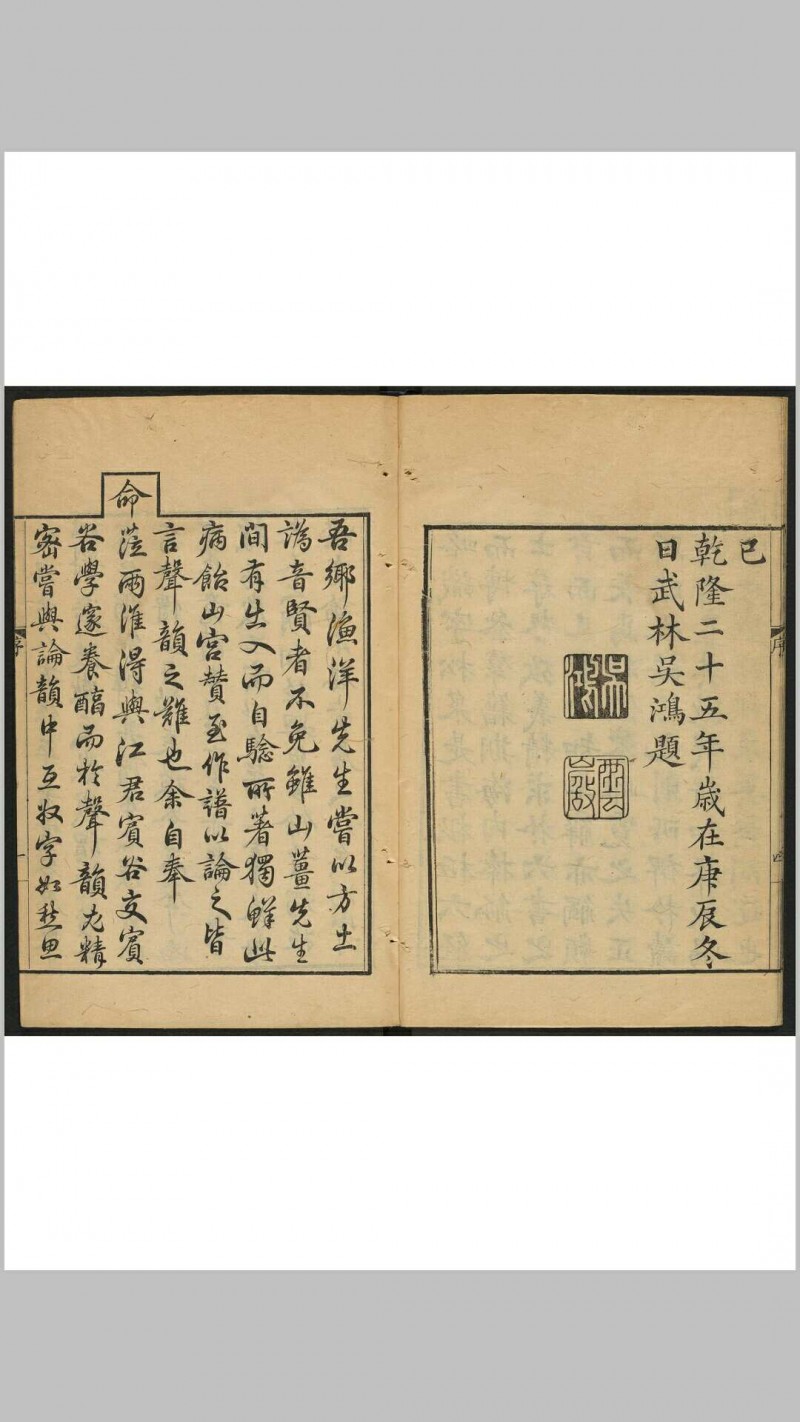 已
乾隆二十五年歲在庚辰冬
日武林吳鴻題
吳鴻
序
四
吾鄉漁洋先生嘗以方土
譌音賢者不免雖山薑先生
間有出入而自驗所著獨鮮此
病飴山宮贊至作譜以論之皆
言聲韻之難也余自奉
命涖兩淮得與江君賓谷交賓
谷學邃養醇而於聲韻尤精
密嘗與論韻中互收字如愁思
序
一